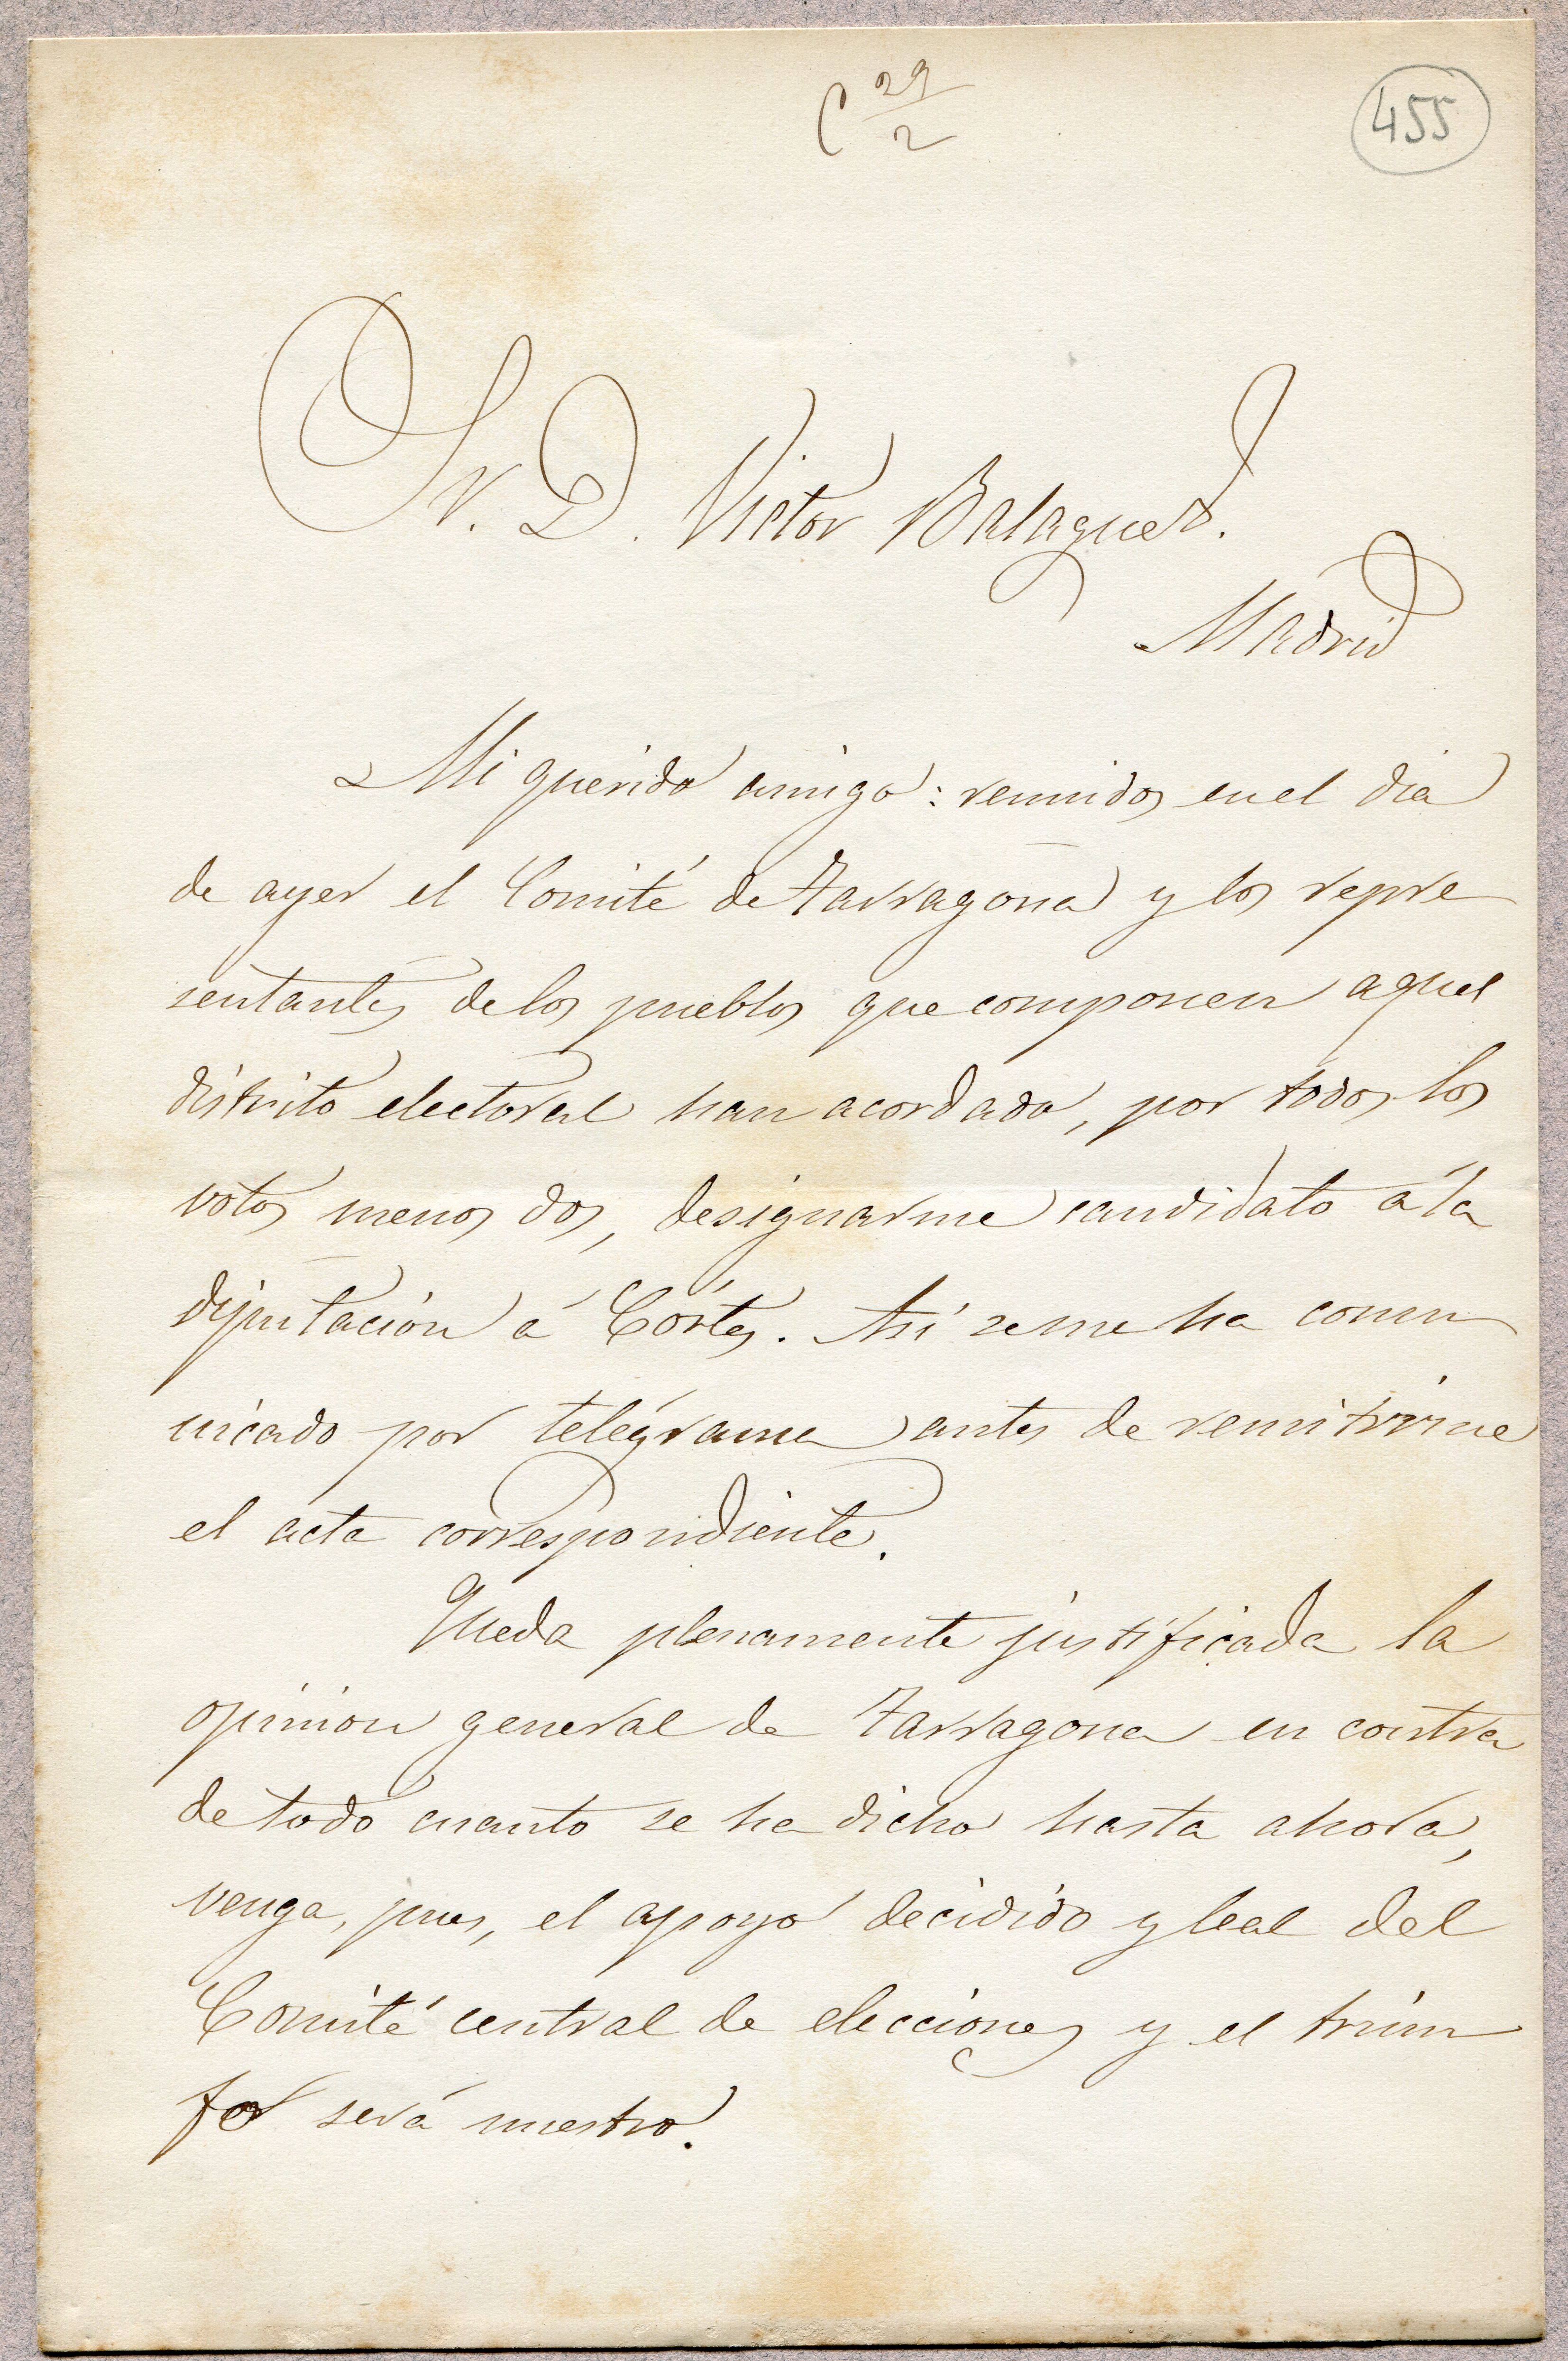 C 29/2
455
Sr. D. Victor Balaguer.
Madrid
Mi querido amigo: reunidos en el dia
de ayer el Comité de Tarragona y los repre
sentantes de los pueblos que componen aquel
distrito electoral han acordado, por todos los
votos menos dos, designarme candidato á la
diputación á Córtes. Asi se me ha comu
nicado por telégrama antes de remitirme
el acta correspondiente.
Queda plenamente justificada la
opinion general de Tarragona en contra
de todo cuanto se ha dicho hasta ahora,
venga, pues, el apoyo decidido y leal del
Comité central de elecciones y el triun
fo será nuestro.